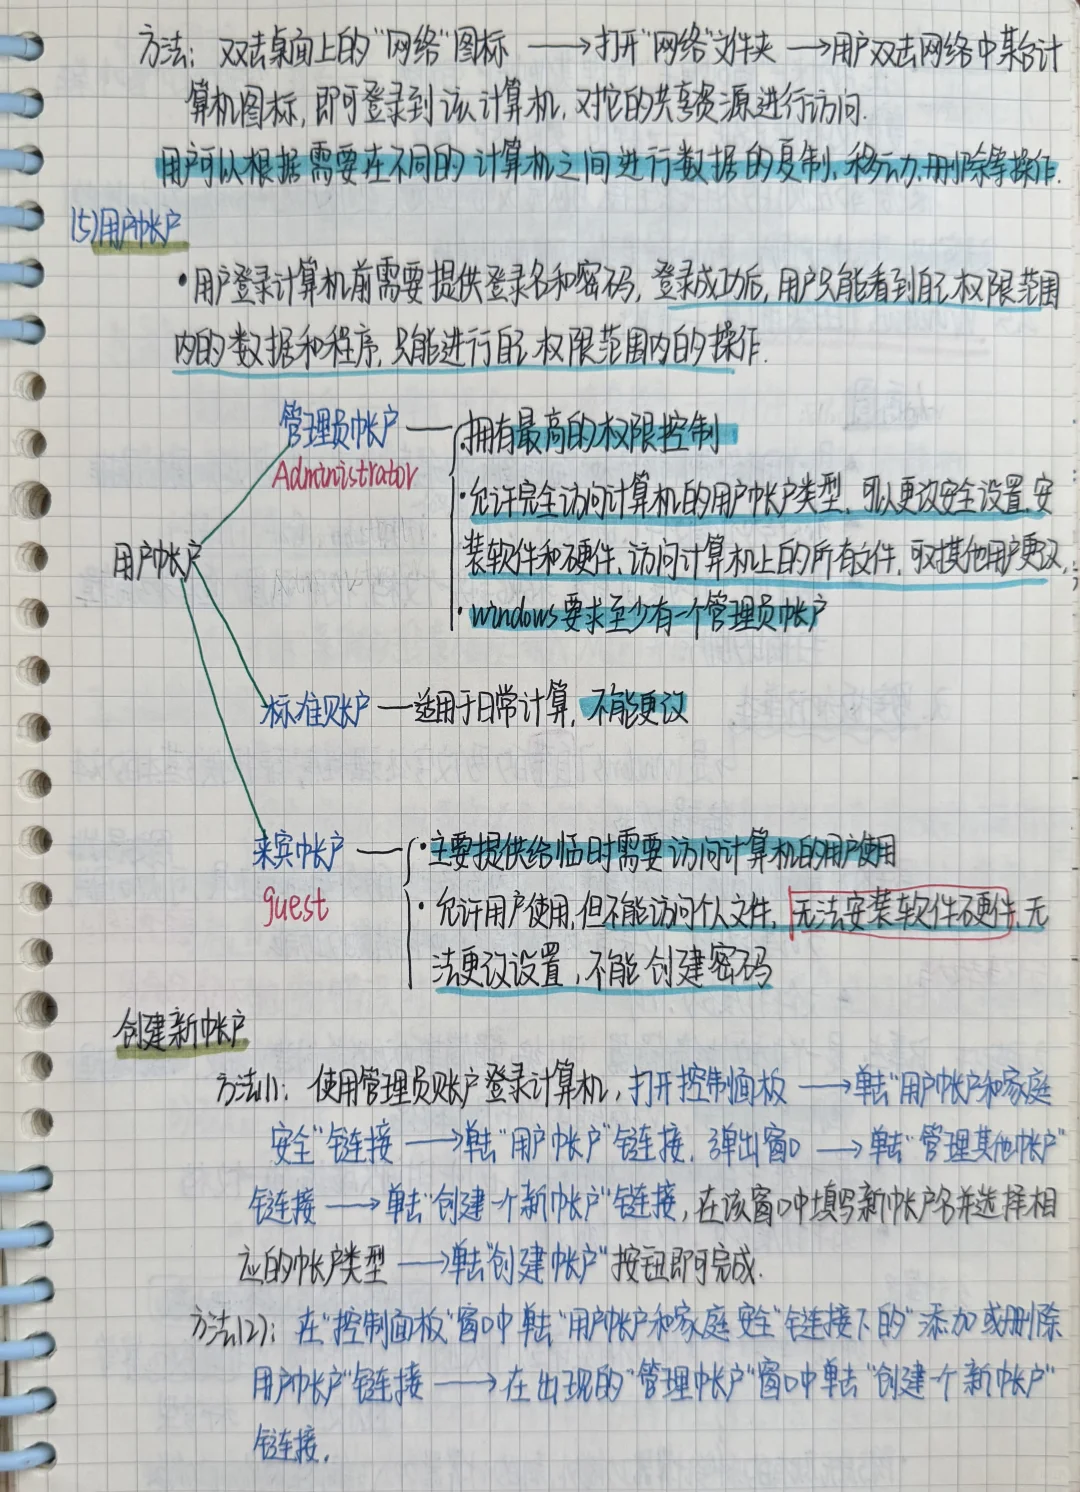 方法：双击桌面上的"网络"图标 ⟶打开"网络"文件夹 ⟶用户双击网络中某台计
算机图标,即可登录到该计算机,对它的共享资源进行访问.
用户可以根据需要在不同的计算机之间进行数据的复制、移动、删除等操作.
(5)用户帐户
·用户登录计算机前需要提供登录名和密码,登录成功后,用户只能看到自己权限范围
内的数据和程序,只能进行自己权限范围内的操作.
管理员帐户 — ·拥有最高的权限控制
Administrator
·允许完全访问计算机的用户帐户类型,可以更改安全设置,安
装软件和硬件,访问计算机上的所有文件,可对其他用户更改,
·windows要求至少有一个管理员帐户
用户帐户
标准账户 — 适用于日常计算,不能更改
来宾帐户 — ·主要提供给临时需要访问计算机的用户使用
guest
·允许用户使用,但不能访问个人文件,无法安装软件硬件,无
法更改设置,不能创建密码
创建新帐户
方法(1):使用管理员账户登录计算机,打开控制面板 ⟶单击"用户帐户和家庭
安全"链接 ⟶单击"用户帐户"链接,弹出窗口 ⟶单击"管理其他帐户"
链接 ⟶单击"创建一个新帐户"链接,在该窗口中填写新帐户名并选择相
应的帐户类型 ⟶单击"创建帐户"按钮即可完成.
方法(2):在"控制面板"窗口中单击"用户帐户和家庭安全"链接下的"添加或删除
用户帐户"链接 ⟶在出现的"管理帐户"窗口中单击"创建一个新帐户"
链接.